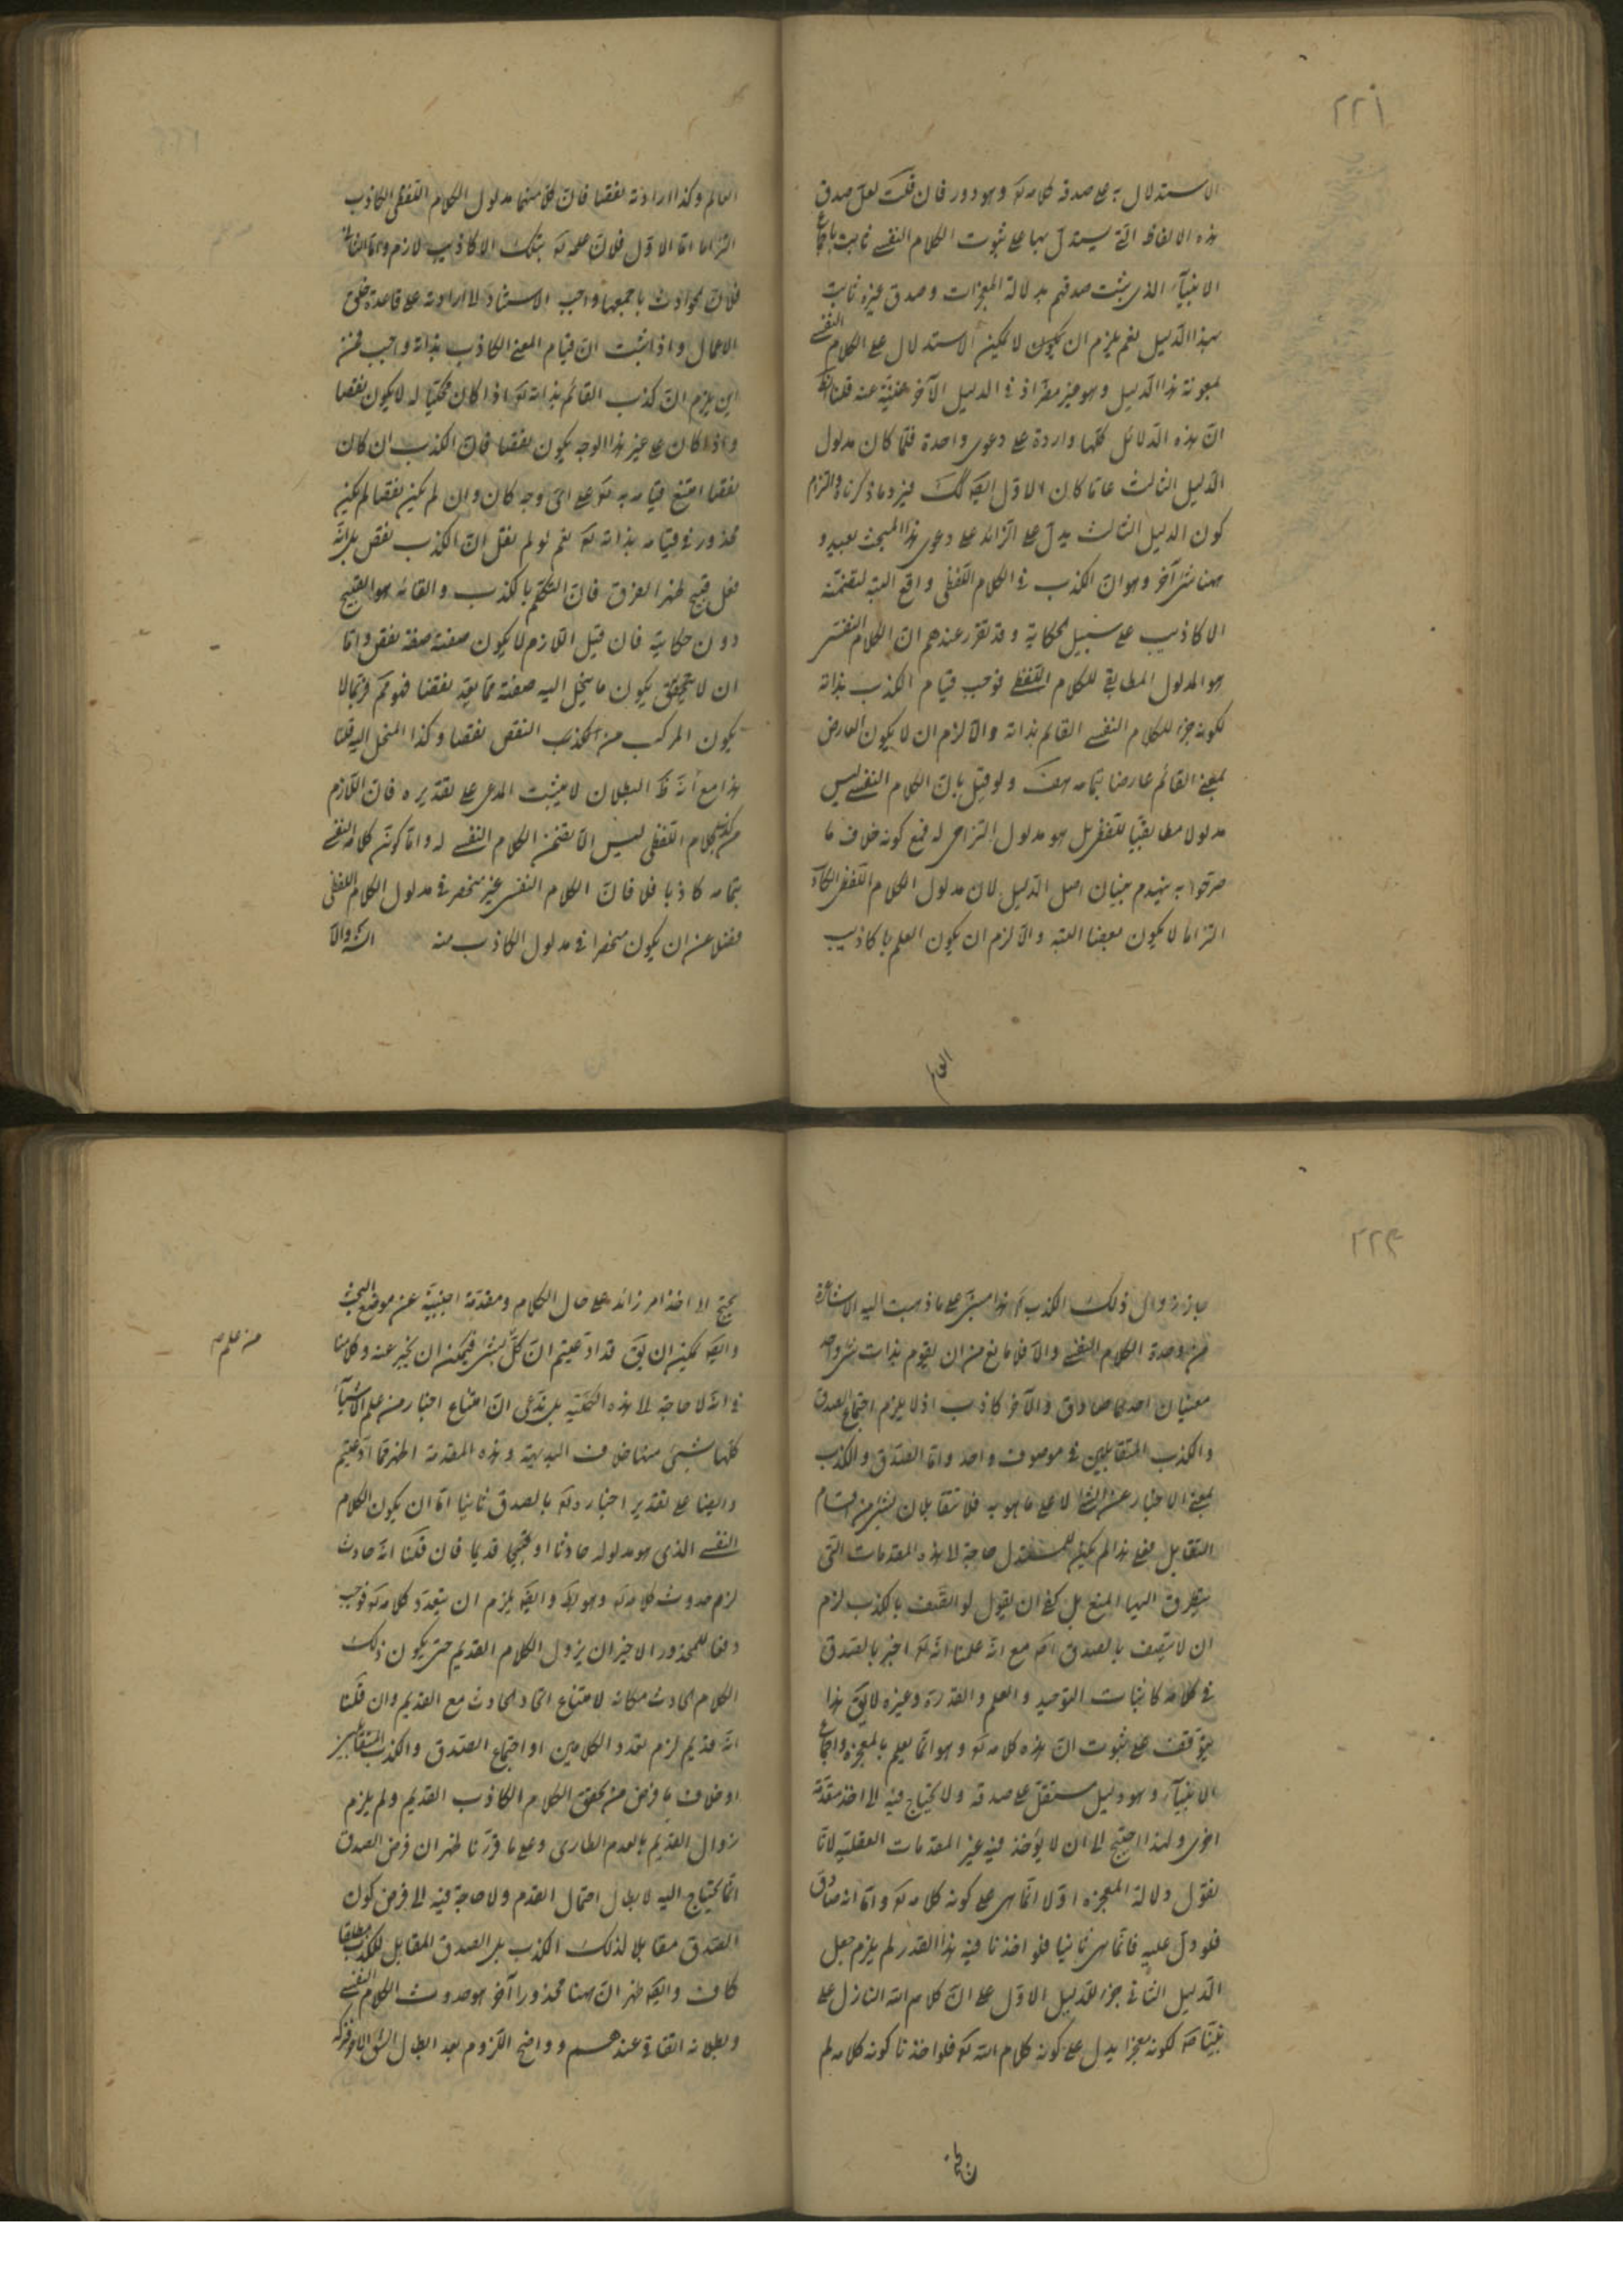 ٢٢١
الاستدلال به على صدقه كلامه تع وهو دور فان قلت لعل صدق
هذه الالفاظ التى يستدل بها على ثبوت الكلام النفسى ثابت باجماع
الانبيآء الذى يثبت صدقهم بدلالة المعجزات وصدق غيره ثابت
بهذا الدليل نعم يلزم ان يكون لا يمكن الاستدلال على الكلام النفسى
بمعونة هذا الدليل وهو غير مضر اذ فى الدليل الآخر غنية عنه قلنا
ان هذه الدلائل كلها واردة على دعوى واحدة فلما كان مدلول
الدليل الثالث عاما كان الاول ايضا كك فيرد ما ذكرناه والتزام
كون الدليل الثالث يدل على الزائد على دعوى هذا المبحث بعيد و
ههنا شئ آخر وهو ان الكذب فى الكلام اللفظى واقع البتة لتضمنه
الاكاذيب على سبيل الحكاية وقد تقرر عندهم ان الكلام النفسى
هو المدلول المطابقى للكلام اللفظى فوجب قيام الكذب بذاته
لكونه جزء للكلام النفسى القائم بذاته والا لزم ان لا يكون العارض
بمعنى القائم عارضا بتمامه هف ولو قيل بان الكلام النفسى ليس
مدلولا مطابقيا للفظ بل هو مدلول التزامى له فمع كونه خلاف ما
صرحوا به ينهدم بنيان اصل الدليل لان مدلول الكلام اللفظى الكاذب
التزاما لا يكون نقصا البتة والا لزم ان يكون العلم باكاذيب
العالم
العالم وكذا ارادته نقصا فان كلا منهما مدلول الكلام اللفظى الكاذب
التزاما اما الاول فلان علمه تع بتلك الاكاذيب لازم واما الثانى
فلان الحوادث باجمعها واجب الاستناد لا ارادته على قاعدة خلق
الاعمال واذا ثبت ان قيام المعنى الكاذب بذاته واجب فمن
اين يلزم ان كذب القائم بذاته تع اذا كان محكيا له لا يكون نقصا
واذا كان على غير هذا الوجه يكون نقصا فان الكذب ان كان
نقصا امتنع قيامه به تع على اى وجه كان وان لم يكن نقصا لم يكن
محذور فى قيامه بذاته تع نعم لو لم نقل ان الكذب نقص بل انه
فعل قبيح ظهر الفرق فان التكلم بالكذب والقائه هو القبيح
دون حكايته فان قيل اللازم لا يكون صفته صفة نقص واما
ان لا يتحقق يكون ما ينحل اليه صفته مما يعد نقصا فلا فربما لا
يكون المركب من الكذب النقص نقصا وكذا المنحل اليه قلنا
هذا مع انه ظ البطلان لا يثبت المدعى على تقديره فان اللازم
من كذب الكلام اللفظى ليس الا تضمن الكلام النفسى له واما كون كلامه النفسى
بتمامه كاذبا فلا فان الكلام النفسى غير منحصر فى مدلول الكلام اللفظى
فضلا عن ان يكون منحصرا فى مدلول الكاذب منه والا
٢٢٢
جاز زوال ذلك الكذب هذا مبنى على ما ذهبت اليه الاشاعرة
من وحدة الكلام النفسى والا فلا مانع من ان يقوم بذات شئ واحد
معنيان احدهما صادق والآخر كاذب اذ لا يلزم اجتماع الصدق
والكذب المتقابلين فى موصوف واحد واما الصدق والكذب
بمعنى الاخبار عن الشئ لا على ما هو به فلا يتقابلان بشئ من اقسام
التقابل فعلى هذا لم يكن للمستدل حاجة لا هذه المقدمات التى
يتطرق اليها المنع بل كفى ان يقول لو اتصف بالكذب لزم
ان لا يتصف بالصدق مع انه علمنا انه تع اخبر بالصدق
فى كلامه كاثبات التوحيد والعلم والقدرة وغيره لا يق هذا
يتوقف على ثبوت ان هذه كلامه تع وهو انما يعلم بالمعجزة واجماع
الانبيآء وهو دليل مستقل على صدقه ولا يحتاج فيه الى اخذ مقدمة
اخرى ولهذا احتج الى ان لا يؤخذ فيه غير المقدمات العقلية لانا
نقول دلالة المعجزة اولا انما هى على كونه كلامه تع واما انه صادق
فلو دل عليه فانما هى ثانيا فلو اخذنا فيه هذا القدر لم يلزم جعل
الدليل الثانى جزء للدليل الاول على ان كلام الله النازل على
نبينا ص لكونه معجزا يدل على كونه كلام الله تع فلو اخذنا كونه كلامه لم
يحتج الى اخذ امر زائد على حال الكلام ومقدمة اجنبية عن موضع البحث
وايض يمكن ان يق قد ادعيتم ان كل بشر فيمكن ان يخبر عنه وكلامنا
فى انه لا حاجة لا هذه الكلية بل ندعى ان امتناع اخبار من علم الاشيآء
كلها بشئ منها خلاف البديهة وهذه المقدمة اظهر مما ادعيتم
وايضا على تقدير اخباره تع بالصدق ثانيا اما ان يكون الكلام
النفسى الذى هو مدلوله حادثا او قديما فان قلنا انه حادث
لزم حدوث كلامه تع وهو بط وايض يلزم ان يتعدد كلامه تع فوجب
دفعا للمحذور الاخير ان يزول الكلام القديم حتى يكون ذلك
الكلام الحادث مكانه لامتناع اتحاد الحادث مع القديم وان قلنا
انه قديم لزم تعدد الكلامين او اجتماع الصدق والكذب المتقابلين
او خلاف ما فرض من تحقق الكلام الكاذب القديم ولم يلزم
زوال القديم بالعدم الطارى وعلى ما قررنا ظهر ان فرض الصدق
انما يحتاج اليه لابطال احتمال القدم ولا حاجة فيه الى فرض كون
الصدق مقابلا لذلك الكذب بل الصدق المقابل للكذب مطلقا
كاف وايض ظهر ان ههنا محذورا آخر هو حدوث الكلام النفسى
وبطلانه اتفاق عندهم وواضح اللزوم بعد ابطال الشق الاول